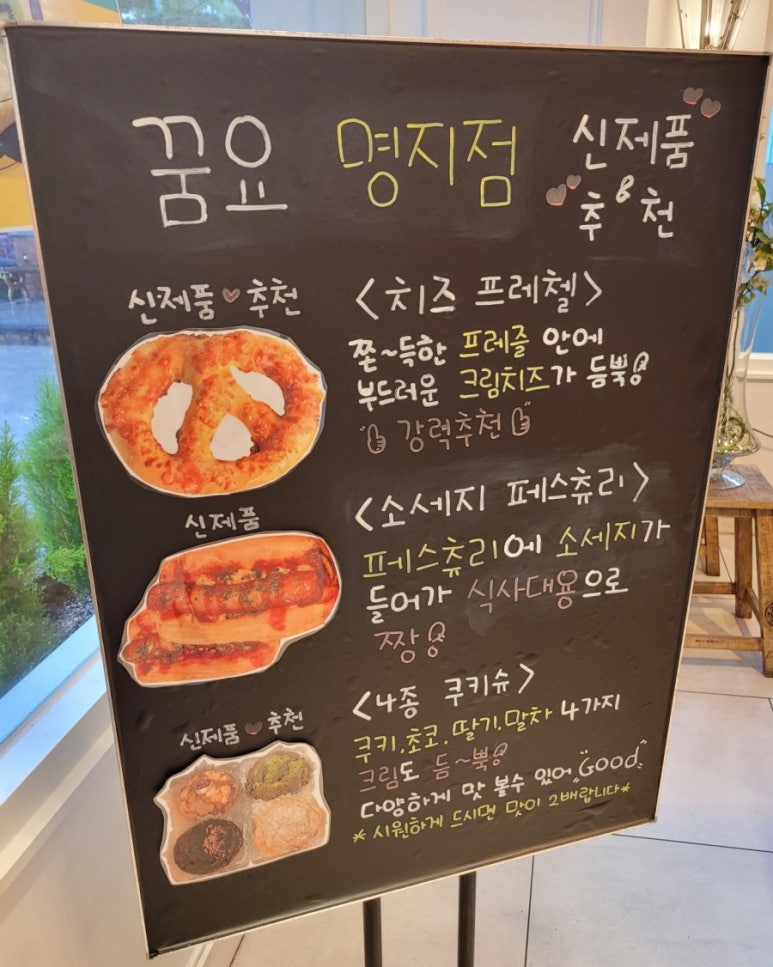 꿈요 명지점 신제품
추천
신제품 추천
<치즈 프레첼>
쫀~득한 프레즐 안에
부드러운 크림치즈가 듬뿍
강력추천
신제품
<소세지 페스츄리>
페스츄리에 소세지가
들어가 식사대용으로
짱
신제품 추천
<4종 쿠키슈>
쿠키, 초코, 딸기, 말차 4가지
크림도 듬~뿍
다양하게 맛 볼수 있어 "GOOD"
* 시원하게 드시면 맛이 2배랍니다 *